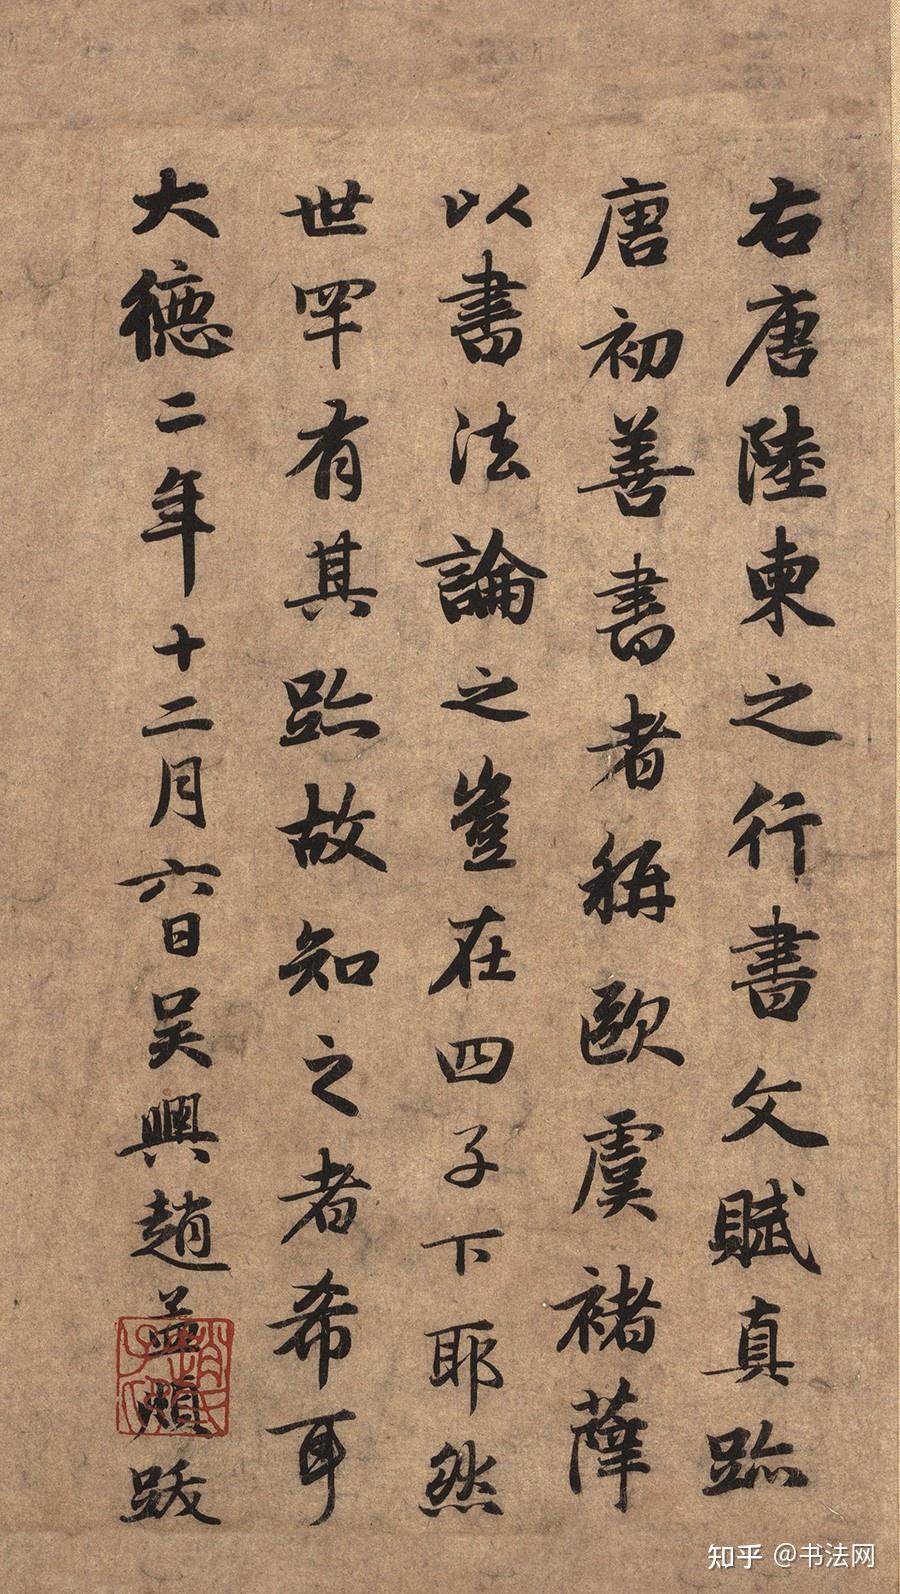 右唐陸柬之行書文賦真跡
唐初善書者稱歐虞褚薛
以書法論之豈在四子下耶然
世罕有其跡故知之者希耳
大德二年十二月六日吴興趙孟頫跋
趙氏子昂
知乎 @书法网